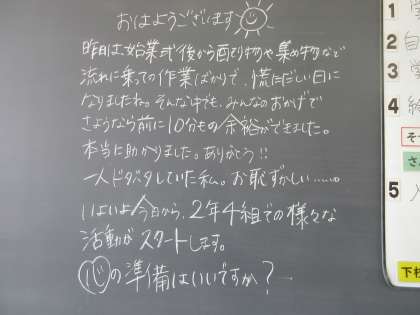 おはようございます
昨日は、始業式後から配り物や集め物など
流れに乗っての作業ばかりで、慌ただしい日に
なりましたね。そんな中でも、みんなのおかげで
さようなら前に10分もの余裕ができました。
本当に助かりました。ありがとう!!
一人ドタバタしていた私。お恥ずかしい……
いよいよ今日から、2年4組での様々な
活動がスタートします。
心の準備はいいですか?
1
2 自
3 学
4
5 入
下校